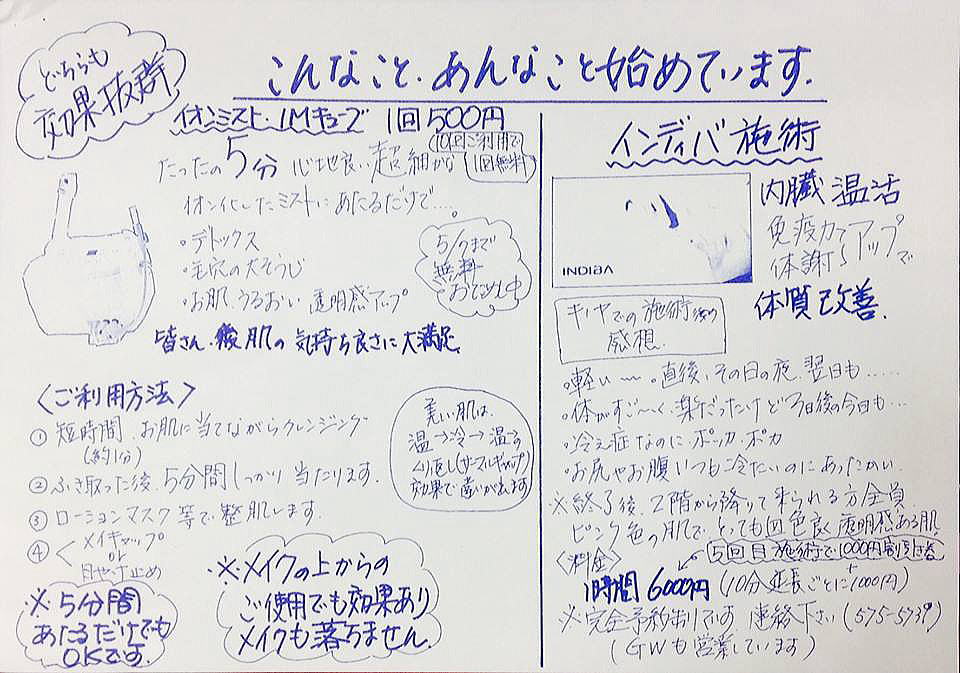 どちらも
効果抜群
こんなこと、あんなこと始めています。
イオンミスト・IMキューブ 1回500円
10回ご利用で
1回無料
たったの5分 心地良い超細かな
イオン化したミストにあたるだけで……。
・デトックス
・毛穴の大そうじ
・お肌、うるおい 透明感アップ
5/7まで
無料
おためし中
皆さん、後肌の気持ち良さに大満足
〈ご利用方法〉
① 短時間、お肌に当てながらクレンジング
(約1分)
② ふき取った後、5分間しっかり当たります。
③ ローションマスク等で整肌します。
④ メイキャップ
or
日やけ止め
美しい肌は、
温→冷→温の
くり返し(サーマルギャップ)
効果で違いが出ます
※5分間
あたるだけでも
OKです。
※メイクの上からの
ご使用でも効果あり
メイクも落ちません。
インディバ施術
INDIBA
内臓温活
免疫力アップ
体謝アップで
体質改善。
キャヤでの施術後の
感想。
・軽い〜〜・直後、その日の夜、翌日も……
・体がすご〜〜く楽だったけど3日後の今日も…
・冷え症なのにポッカポカ
・お尻やお腹いつも冷たいのにあたたかい。
※終了後、2階から降りて来られる方全員
ピンク色の肌で、とっても血色良く透明感ある肌
〈料金〉
5回目施術で1000円割引き券
1時間 6000円(10分延長ごとに+1000円)
※完全予約制です 連絡下さい(575-5739)
(GWも営業しています)